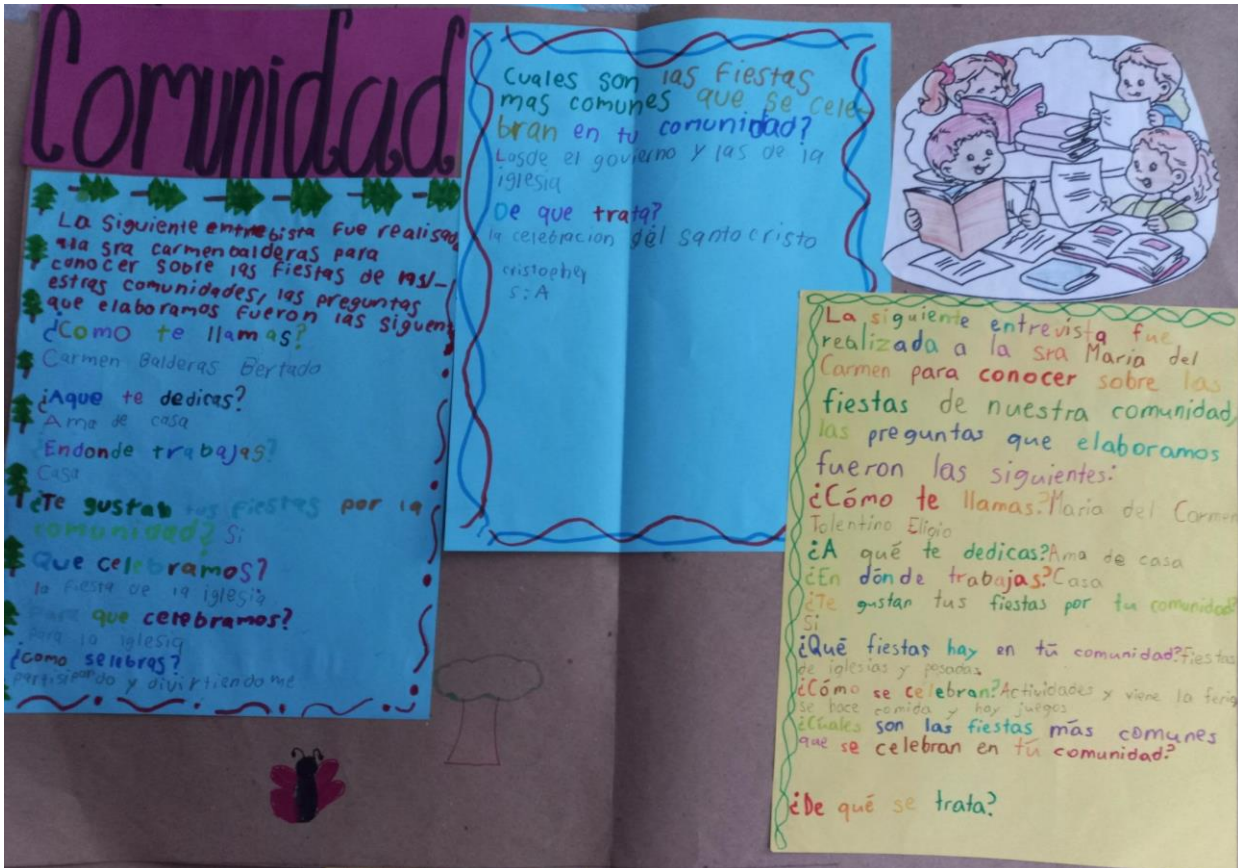 Comunidad
La Siguiente entrebista fue realisad
ala sra carmen balderas para
conocer sobre las fiestas de nu-
estras comunidades, las preguntas
que elaboramos fueron las siguen
¿Como te llamas?
Carmen Balderas Bertado
¿Aque te dedicas?
Ama de casa
Endonde trabajas?
Casa
¿Te gustab tus fiestas por la
comunidad? Si
Que celebramos?
la fiesta de la iglesia
Para que celebramos?
para la iglesia
¿como selebras?
partisipando y divirtiendome
Cuales son las Fiestas
mas comunes que se cele-
bran en tu comunidad?
Losde el govierno y las de la
iglesia
De que trata?
la celebracion del santo cristo
cristopher
S:A
La siguiente entrevista fue
realizada a la sra Maria del
Carmen para conocer sobre las
fiestas de nuestra comunidad,
las preguntas que elaboramos
fueron las siguientes:
¿Cómo te llamas? Maria del Carmen
Tolentino Eligio
¿A qué te dedicas? Ama de casa
¿En dónde trabajas? Casa
¿Te gustan tus fiestas por tu comunidad?
Si
¿Qué fiestas hay en tú comunidad? fiestas
de iglesias y posadas
¿Cómo se celebran? Actividades y viene la feria
se hace comida y hay juegos
¿Cuales son las fiestas más comunes
que se celebran en tú comunidad?
¿De qué se trata?